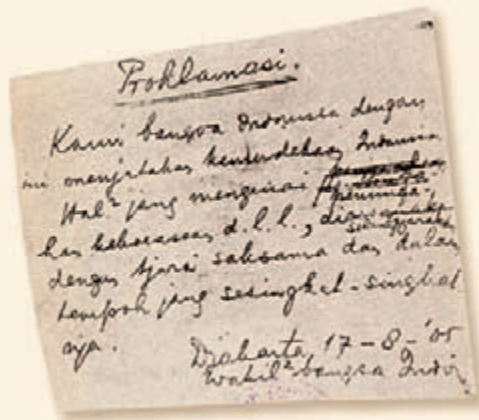 Proklamasi.
Kami bangsa Indonesia dengan
ini menjatakan kemerdekaan Indonesia
Hal² jang mengenai peminda-
han kekoeasaan d.l.l., diselenggarakan
dengan tjara saksama dan dalam
tempoh jang sesingkat-singkat
nja.
Djakarta, 17-8-'05
Wakil² bangsa Indo